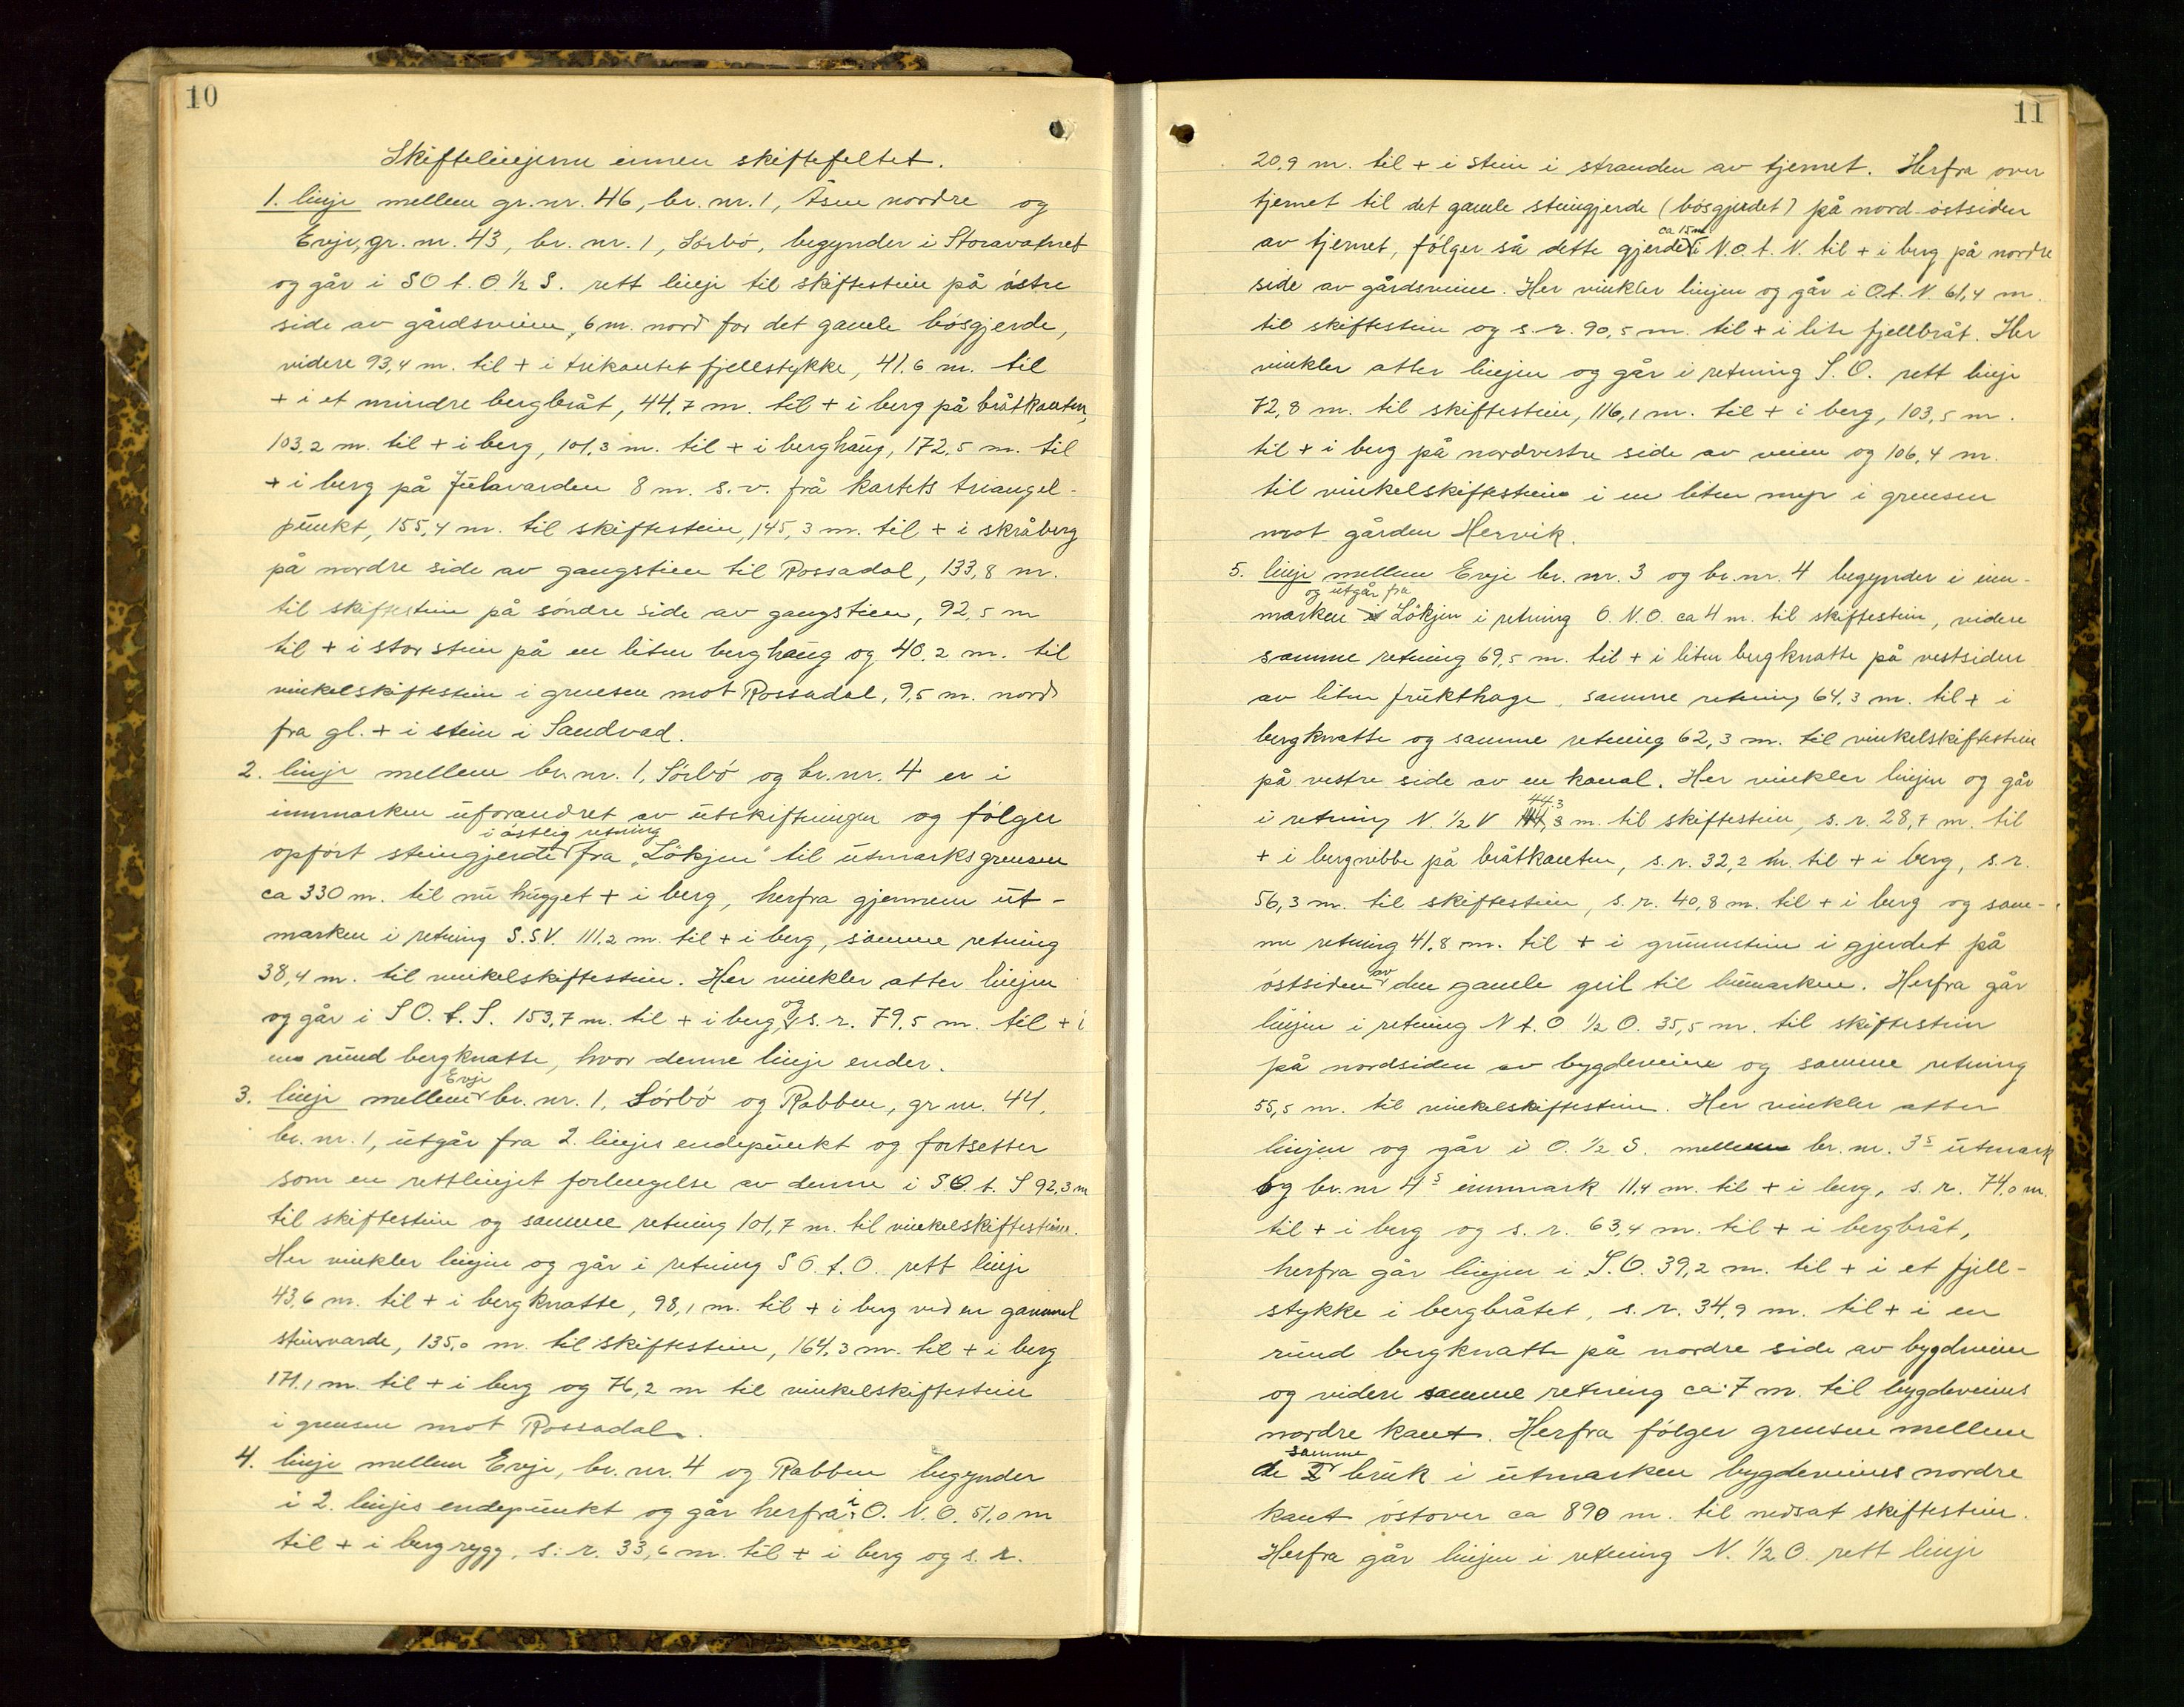 10
Skiftelinjerne innen skiftefeltet.
1. linje mellem gr. nr. 46, br. nr. 1, Åsen nordre og
Erøje, gr. nr. 43, br. nr. 1, Sörbö, begynder i Storavatnet
og går i SO t. O. ½ S. rett linje til skiftestein på östre
side av gårdsveien, 6 m. nord for det gamle bösgjerde,
videre 93,4 m. til + i trekantet fjellstykke, 41.6 m. til
+ i et mindre bergbråt, 44,7 m. til + i berg på bråtkanten,
103,2 m. til + i berg, 101,3 m. til + i berghaug, 172,5 m. til
+ i berg på Julavarden 8 m. s.v. frå kartets triangel-
punkt, 155,4 m. til skiftestein, 145,3 m. til + i skråberg
på nordre side av gangstien til Rossadal, 133,8 m.
til skiftestein på söndre side av gangstien, 92,5 m
til + i stor stein på en liten berghaug og 40,2 m. til
vinkelskiftestein i grensen mot Rossadal, 9,5 m. nord
fra gl. + i stein i Sandvad.
2. linje mellem br. nr. 1, Sörbö og br. nr. 4 er i
innmarken uforandret av utskiftningen og fölger
i östlig retning
opfört steingjerde fra "Lökjen" til utmarksgrensen
ca 330 m. til nu hugget + i berg, herfra gjennem ut-
marken i retning S.SV. 111,2 m. til + i berg, samme retning
38,4 m. til vinkelskiftestein. Her vinkler atter linjen
og går i SO. t. S. 153,7 m. til + i berg og s. r. 79,5 m. til + i
en rund bergknatte, hvor denne linje ender.
Evje
3. linje mellem br. nr. 1, Sörbö og Rabben, gr nr. 44,
br. nr. 1, utgår fra 2. linjes endepunkt og fortsetter
som en rettlinjet forlengelse av denne i SO. t. S 92,3 m
til skiftestein og samme retning 101,7 m. til vinkelskiftestein.
Her vinkler linjen og går i retning SO. t. O. rett linje
43,6 m. til + i bergknatte, 98,1 m. til + i berg ved en gammel
steinvarde, 135,0 m. til skiftestein, 164,3 m. til + i berg
171,1 m. til + i berg og 76,2 m til vinkelskiftestein
i grensen mot Rossadal.
4. linje mellem Evje, br. nr. 4 og Rabben begynder
i 2. linjes endepunkt og går herfra i O. N. O. 51,0 m
til + i bergrygg, s. r. 33,6 m. til + i berg og s. r.
11
20,9 m. til + i stein i stranden av tjernet. Herfra over
tjernet til det gamle steingjerde (bösgjerdet) på nord-östsiden
ca 15 m
av tjernet, fölger så dette gjerde i N.O. t. N. til + i berg på nordre
side av gårdsveien. Her vinkler linjen og går i O.t. N. 61,4 m.
til skiftestein og s. r. 90,5 m. til + i lite fjellbråt. Her
vinkler atter linjen og går i retning S. O. rett linje
72,8 m. til skiftestein, 116,1 m. til + i berg, 103,5 m.
til + i berg på nordvestre side av veien og 106,4 m.
til vinkelskiftestein i en liten myr i grensen
mot gården Hervik.
5. linje mellem Evje br. nr. 3 og br. nr. 4 begynder i inn-
og utgår fra
marken i Lökjen i retning O. N. O. ca 4 m. til skiftestein, videre
samme retning 69,5 m. til + i liten bergknatte på vestsiden
av liten frukthage, samme retning 64,3 m. til + i
bergknatte og samme retning 62,3 m. til vinkelskiftestein
på vestre side av en kanal. Her vinkler linjen og går
44,3
i retning N. ½ V 44,3 m. til skiftestein, s. r. 28,7 m. til
+ i bergnibbe på bråtkanten, s. r. 32,2 m. til + i berg, s. r.
56,3 m. til skiftestein, s. r. 40,8 m. til + i berg og sam-
me retning 41,8 m. til + i grunnstein i gjerdet på
östsiden av den gamle geil til bumarken. Herfra går
linjen i retning N t. O ½ O. 35,5 m. til skiftestein
på nordsiden av bygdeveien og samme retning
55,5 m. til vinkelskiftestein. Her vinkler atter
linjen og går i O. ½ S. mellem br. nr. 3s utmark
og br. nr 4s innmark 11,4 m. til + i berg, s. r. 74,0 m.
til + i berg og s. r. 63,4 m. til + i bergbråt,
herfra går linjen i S.O. 39,2 m. til + i et fjell-
stykke i bergbråtet, s. r. 34,9 m. til + i en
rund bergknatte på nordre side av bygdeveien
og videre samme retning ca: 7 m. til bygdeveiens
nordre kant. Herfra fölger grensen mellem
samme
de 2 bruk i utmarken bygdeveiens nordre
kant östover ca 890 m. til nedsat skiftestein.
Herfra går linjen i retning N. ½ O. rett linje